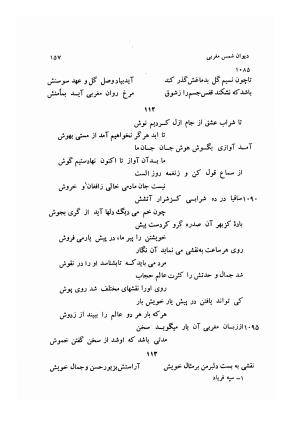 دیوان شمس مغربی ۱۵۷
۱۰۸۵
تاچون نسیم گل بدماغش گذر کند آیدبیاد وصل گل و عهد سوسنش
باشد که نشکند قفس جسم را زشوق مرغ روان مغربی آید بمأمنش
۱۱۲
تا شراب عشق از جام ازل کردیم نوش
تا ابد هرگز نخواهیم آمد از مستی بهوش
آمد آوازی بگوش هوش جان جان ما
ما بدان آواز تا اکنون نهادستیم گوش
از سماع قول کن و زنغمه روز الست
نیست جان مادمی خالی زافغان و خروش
۱۰۹۰ ساقیا در ده شرابی کزشرار آتشش
چون خم می دیگ دلها آید از گری بجوش
بادۀ کزبهر آن صدره گرو کردست پیش
خویشتن را پیر ما، در پیش یارمی فروش
روی هرساعت به نقشی می نماید آن نگار
مرد می باید که تابشناسد او را در نقوش
شد جمال وحدتش را کثرت عالم حجاب
روی اورا نقشهای مختلف شد روی پوش
کی تواند یافتن در پیش یار خویش بار
هرکه بار هر دو عالم را ببیند از دوش
۱۰۹۵ از زبان مغربی آن یار میگوید سخن
مدتی باشد که اوشد از سخن گفتن خموش
۱۱۳
نقشی به بست دلبرمن برمثال خویش آراستش بزیورحسن وجمال خویش
۱- سپه فریاد